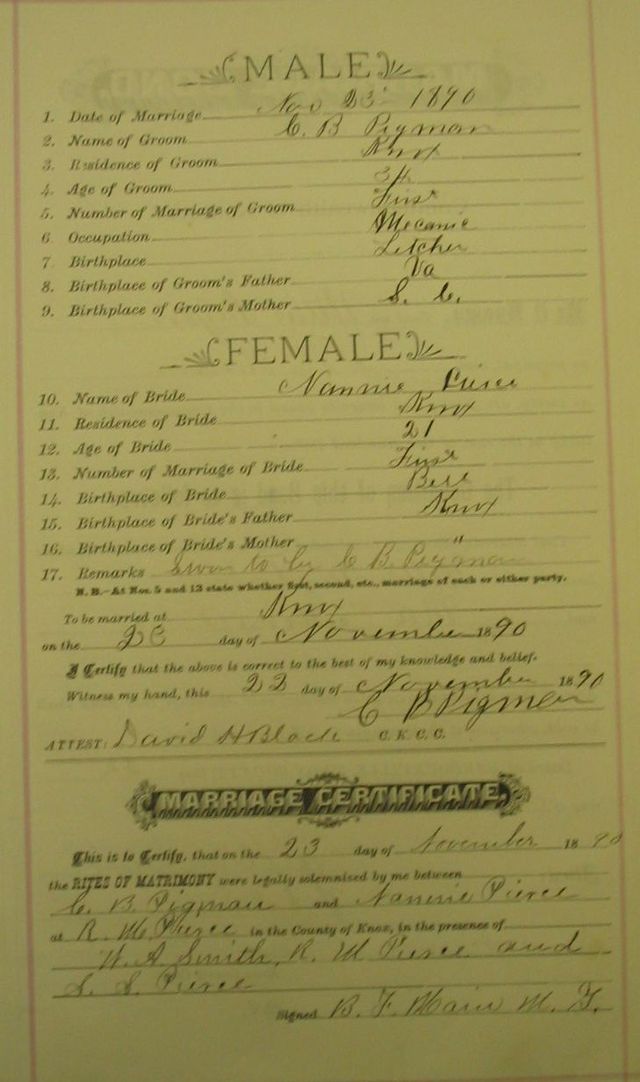 MALE
1. Date of Marriage Nov 23 1890
2. Name of Groom C. B Pigman
3. Residence of Groom Knox
4. Age of Groom
5. Number of Marriage of Groom First
6. Occupation Mecanic
7. Birthplace Letcher
8. Birthplace of Groom's Father Va
9. Birthplace of Groom's Mother S. C.
FEMALE
10. Name of Bride Nannie Pierce
11. Residence of Bride Knox
12. Age of Bride 21
13. Number of Marriage of Bride First
14. Birthplace of Bride Bell
15. Birthplace of Bride's Father Knox
16. Birthplace of Bride's Mother "
17. Remarks sworn to by C B. Pigman
N. B.—At Nos. 5 and 13 state whether first, second, etc., marriage of each or either party.
To be married at Knox
on the day of November 1890
I Certify that the above is correct to the best of my knowledge and belief.
Witness my hand, this 22 day of November 1890
C B Pigman
ATTEST: David H Black C. K. C. C.
MARRIAGE CERTIFICATE.
This is to Certify, that on the 23 day of November 1890
the RITES OF MATRIMONY were legally solemnized by me between
C. B. Pigman and Nannie Pierce
at R. M Pierce in the County of Knox, in the presence of
W. A Smith, R. M Pierce and
S. S. Pierce
Signed B. F. Main M. G.